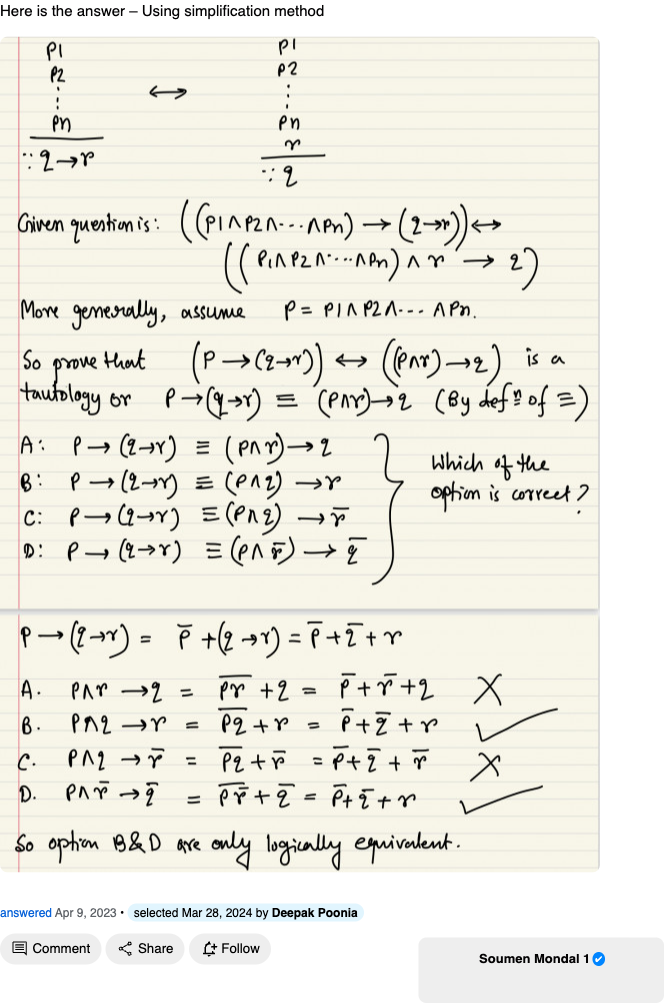 Here is the answer – Using simplification method
P1 P1
P2 P2
⋮ ↔ ⋮
Pn Pn
r
∵ q→r ∵ q
Given question is: ((P1∧P2∧---∧Pn) → (q→r)) ↔
((P1∧P2∧----∧Pn) ∧ r → q)
More generally, assume P = P1∧P2∧--- ∧Pn.
So prove that (P→(q→r)) ↔ ((P∧r)→q) is a
tautology or P→(q→r) ≡ (P∧r)→q (By defⁿ of ≡)
A: P→ (q→r) ≡ (P∧r)→q
B: P→ (q→r) ≡ (P∧q) →r
C: P→ (q→r) ≡ (P∧q) →r̅
D: P→ (q→r) ≡ (P∧r̅) → q̅
Which of the
option is correct?
P→(q→r) = P̅ +(q→r) = P̅+q̅+r
A. P∧r →q = P̅r̅ +q = P̅+r̅+q X
B. P∧q →r = P̅q̅ +r = P̅+q̅+r ✓
C. P∧q →r̅ = P̅q̅ +r̅ = P̅+q̅+r̅ X
D. P∧r̅ →q̅ = \overline{Pr̅}+q̅ = P̅+q̅+r ✓
So option B&D are only logically equivalent.
answered Apr 9, 2023 • selected Mar 28, 2024 by Deepak Poonia
Comment Share Follow
Soumen Mondal 1